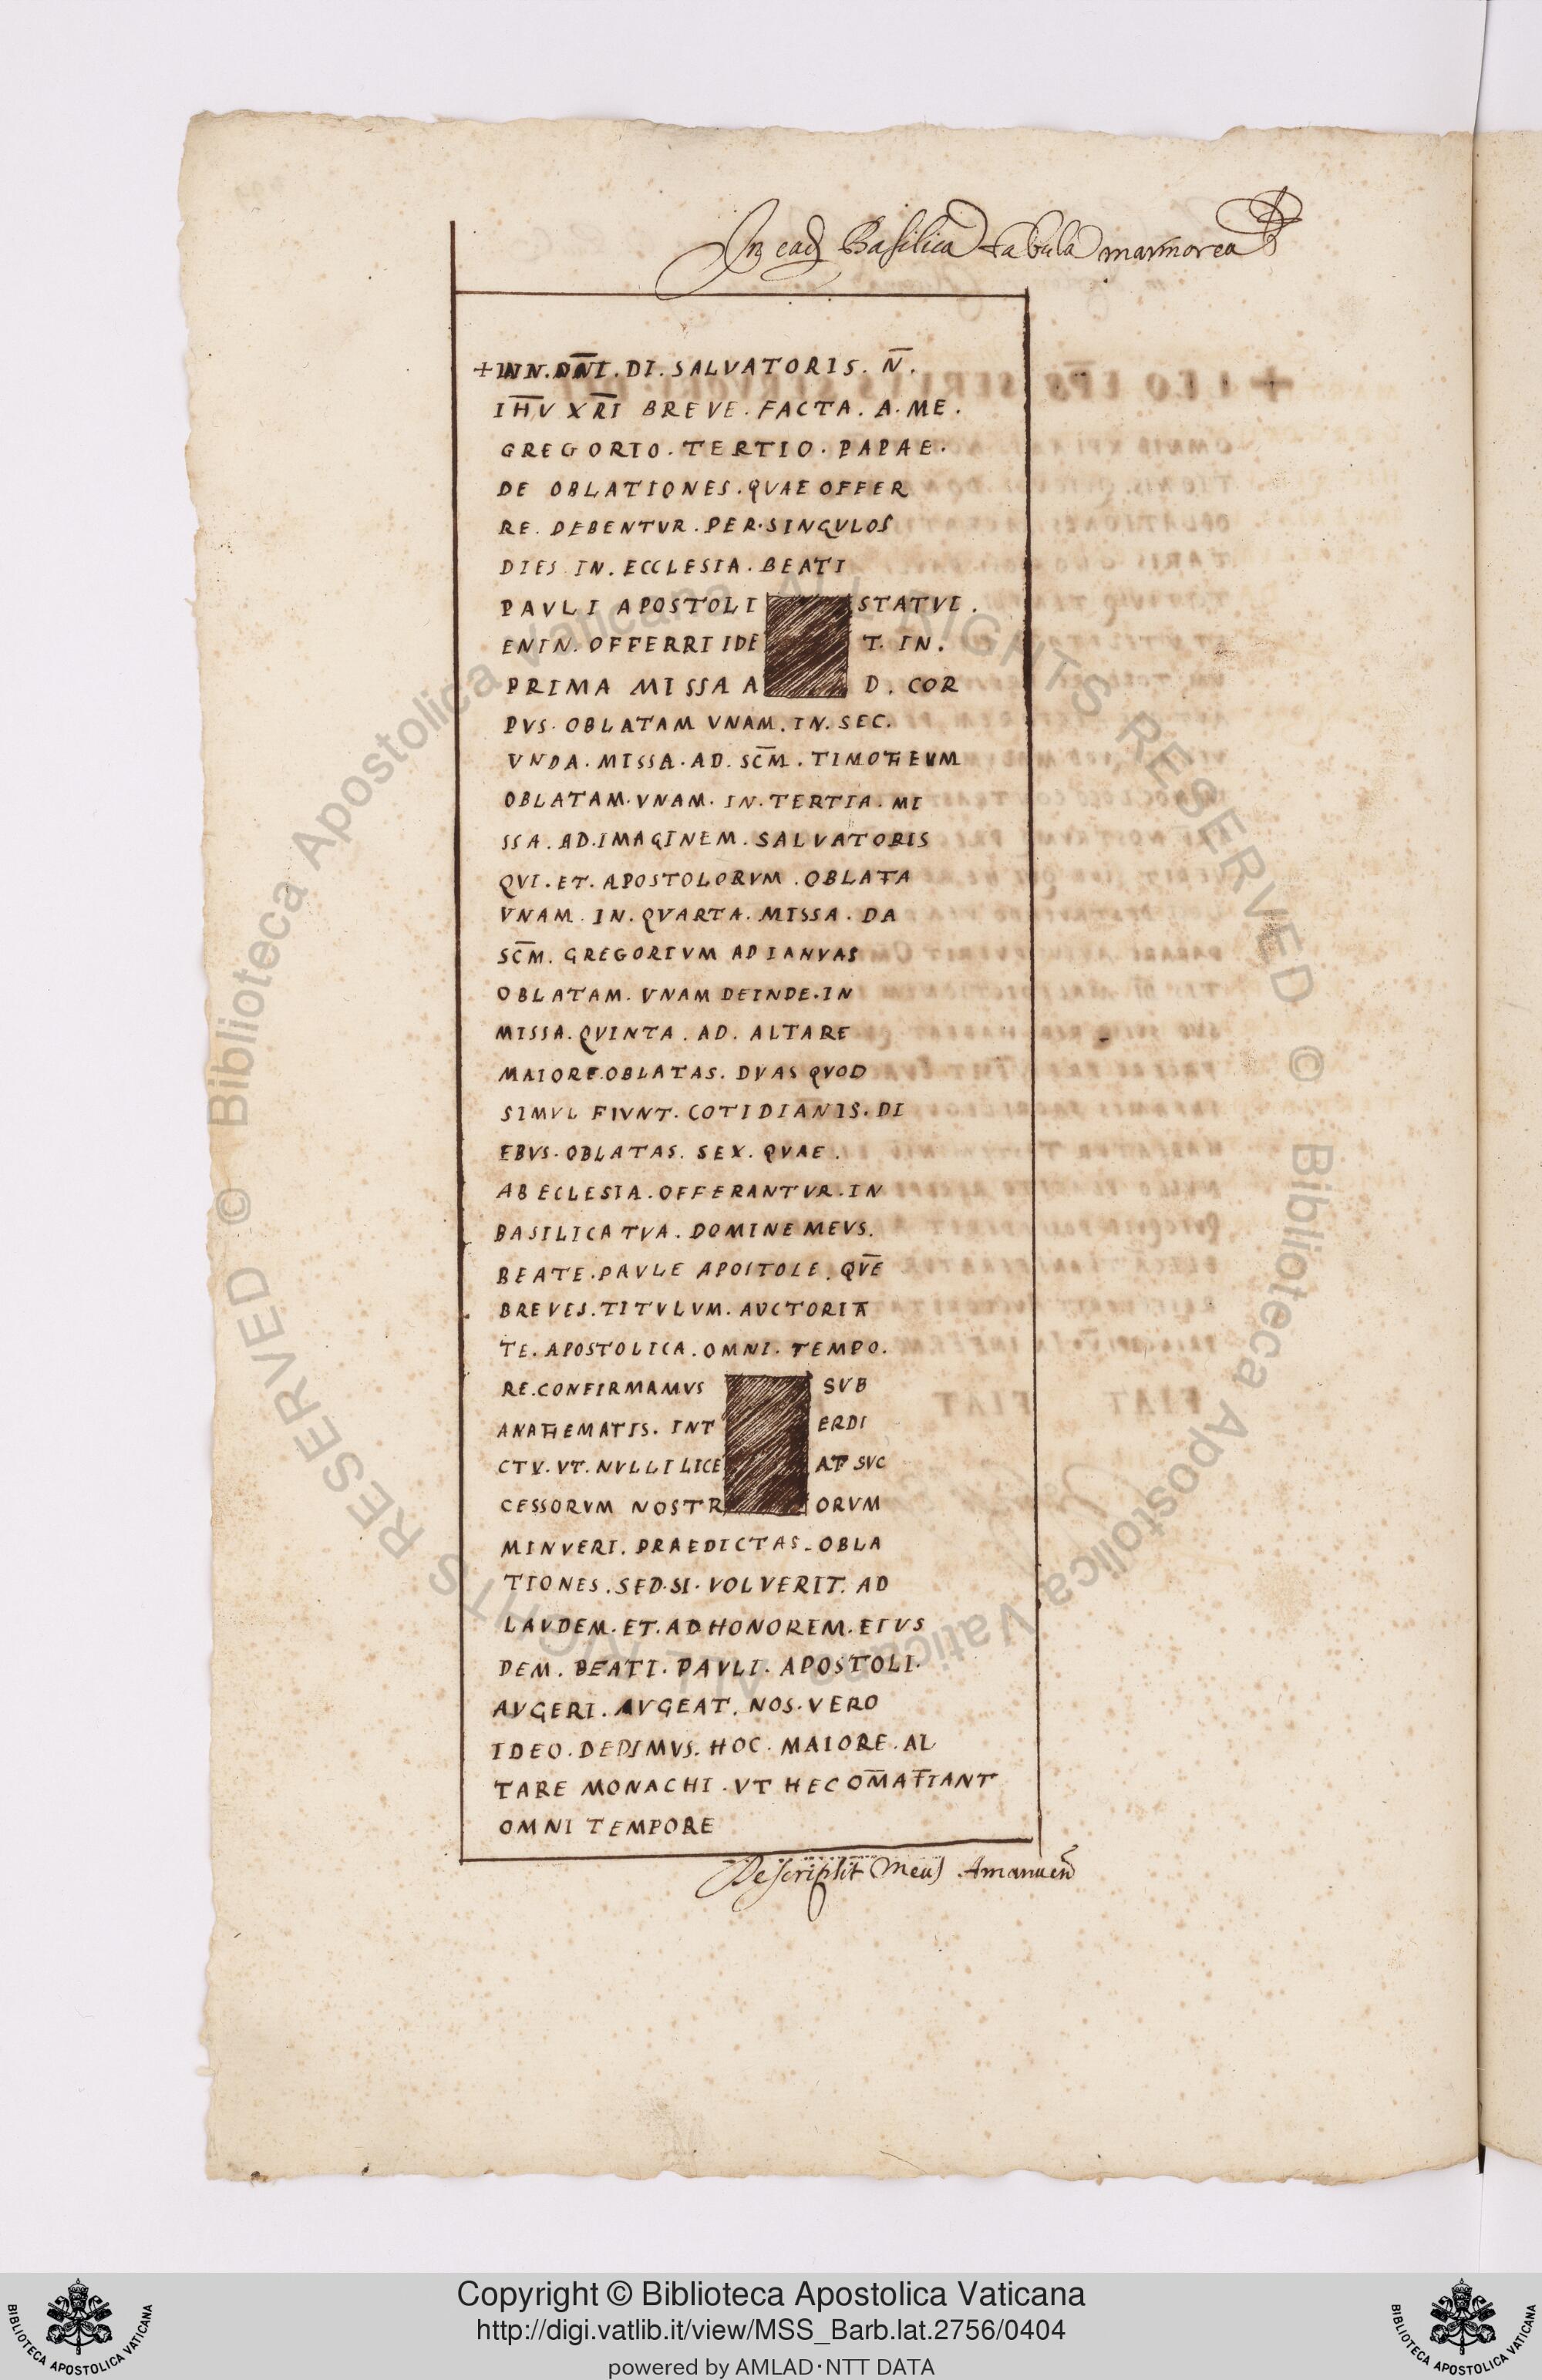 In ead Basilica tabula marmorea
+ IN N. DN̅I. DI. SALVATORIS. N̅.
IH̅V XR̅I BREVE. FACTA. A. ME.
GREGORIO. TERTIO. PAPAE.
DE OBLATIONES. QVAE OFFER
RE. DEBENTVR. PER. SINGVLOS
DIES IN. ECCLESIA. BEATI
PAVLI APOSTOLI STATVI.
ENIN. OFFERRI IDE T. IN.
PRIMA MISSA A D. COR
PVS. OBLATAM VNAM. IN. SEC.
VNDA. MISSA. AD. SC̅M. TIMOTHEVM
OBLATAM. VNAM. IN. TERTIA. MI
SSA. AD. IMAGINEM. SALVATORIS
QVI. ET. APOSTOLORVM. OBLATA
VNAM. IN. QVARTA. MISSA. DA
SC̅M. GREGORIVM AD IANVAS
OBLATAM. VNAM DEINDE. IN
MISSA. QVINTA. AD. ALTARE
MAIORE. OBLATAS. DVAS QVOD
SIMVL FIVNT. COTIDIANIS. DI
EBVS. OBLATAS. SEX. QVAE.
AB ECLESIA. OFFERANTVR. IN
BASILICA TVA. DOMINE MEVS.
BEATE. PAVLE APOSTOLE. QV̅E
BREVES. TITVLVM. AVCTORITA
TE. APOSTOLICA. OMNI. TEMPO.
RE. CONFIRMAMVS SVB
ANATHEMATIS. INT ERDI
CTV. VT. NVLLI LICE AT SVC
CESSORVM NOSTR ORVM
MINVERI. PRAEDICTAS. OBLA
TIONES. SED. SI. VOLVERIT. AD
LAVDEM. ET. AD HONOREM. EIVS
DEM. BEATI. PAVLI. APOSTOLI.
AVGERI. AVGEAT. NOS. VERO
IDEO. DEDIMVS. HOC. MAIORE. AL
TARE MONACHI. VT HEC OM̅A FIANT
OMNI TEMPORE
Descripsit meus Amanuen
Copyright © Biblioteca Apostolica Vaticana
http://digi.vatlib.it/view/MSS_Barb.lat.2756/0404
powered by AMLAD·NTT DATA
BIBLIOTECA APOSTOLICA VATICANA
BIBLIOTECA APOSTOLICA VATICANA
© Biblioteca Apostolica Vaticana ALL RIGHTS RESERVED © Biblioteca Apostolica Vaticana ALL RIGHTS RESERVED